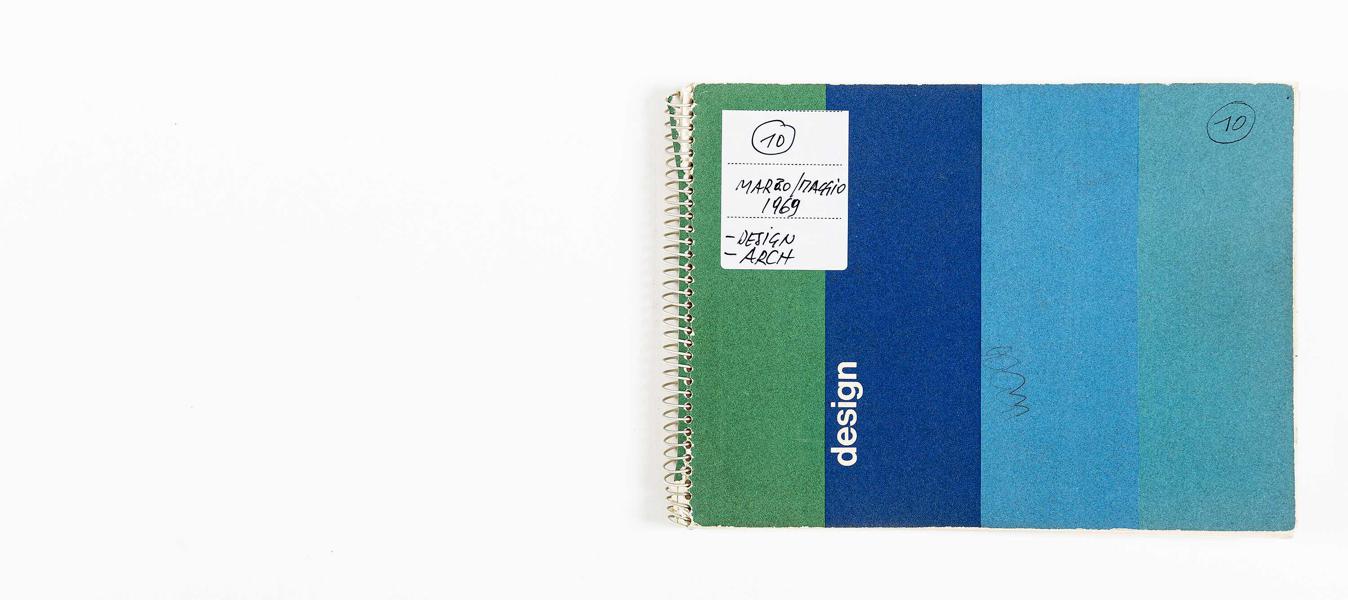 10
MARZO/MAGGIO
1969
- DESIGN
- ARCH
10
design